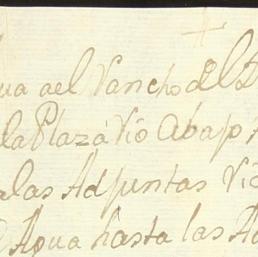 ua del Rancho del
la Plaza Rio abajo
a las Adjuntas Rio
Agua hasta las